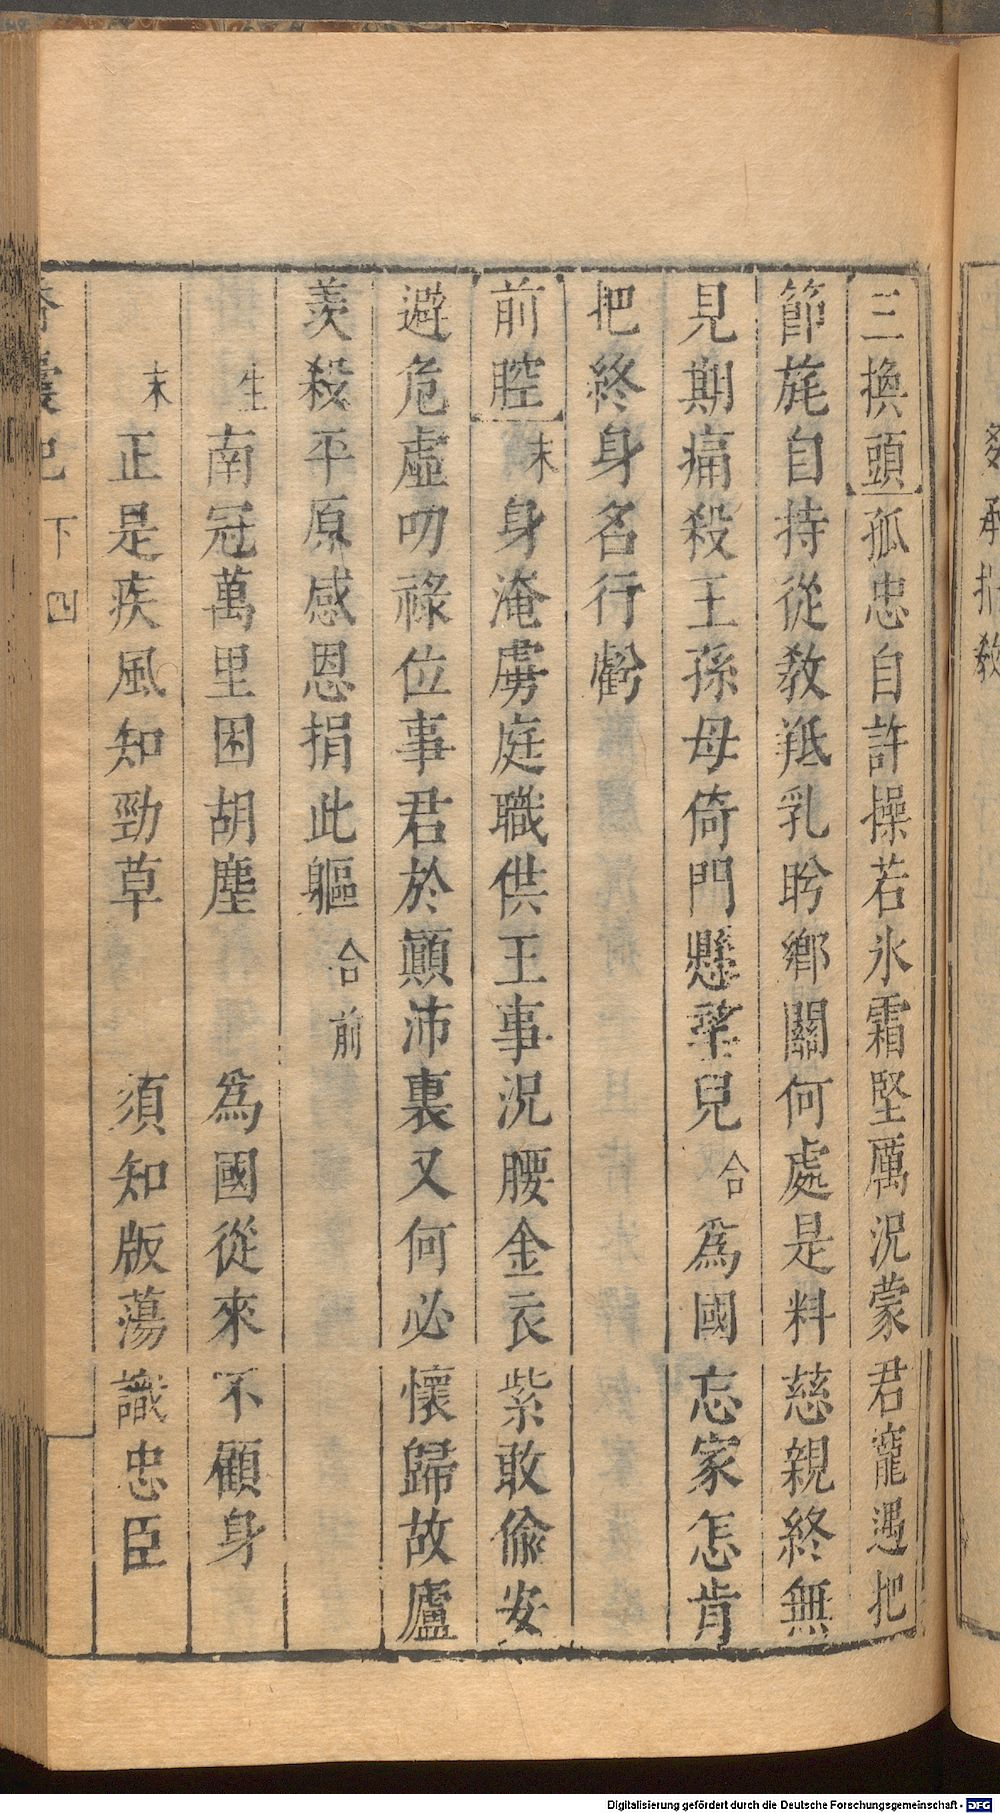 三換頭孤忠自許操若氷霜堅厲況蒙君寵遇把
節旄自持從教羝乳盻鄉關何處是料慈親終無
見期痛殺王孫母倚門懸望兒合爲國忘家怎肯
把終身名行虧
前腔末身淹虜庭職供王事況腰金衣紫敢偸安
避危虛叨祿位事君於顚沛裏又何必懷歸故廬
羨殺平原感恩捐此軀合前
生南冠萬里困胡塵 爲國從來不顧身
末正是疾風知勁草 須知版蕩識忠臣
香囊記 下 四
Digitalisierung gefördert durch die Deutsche Forschungsgemeinschaft - DFG